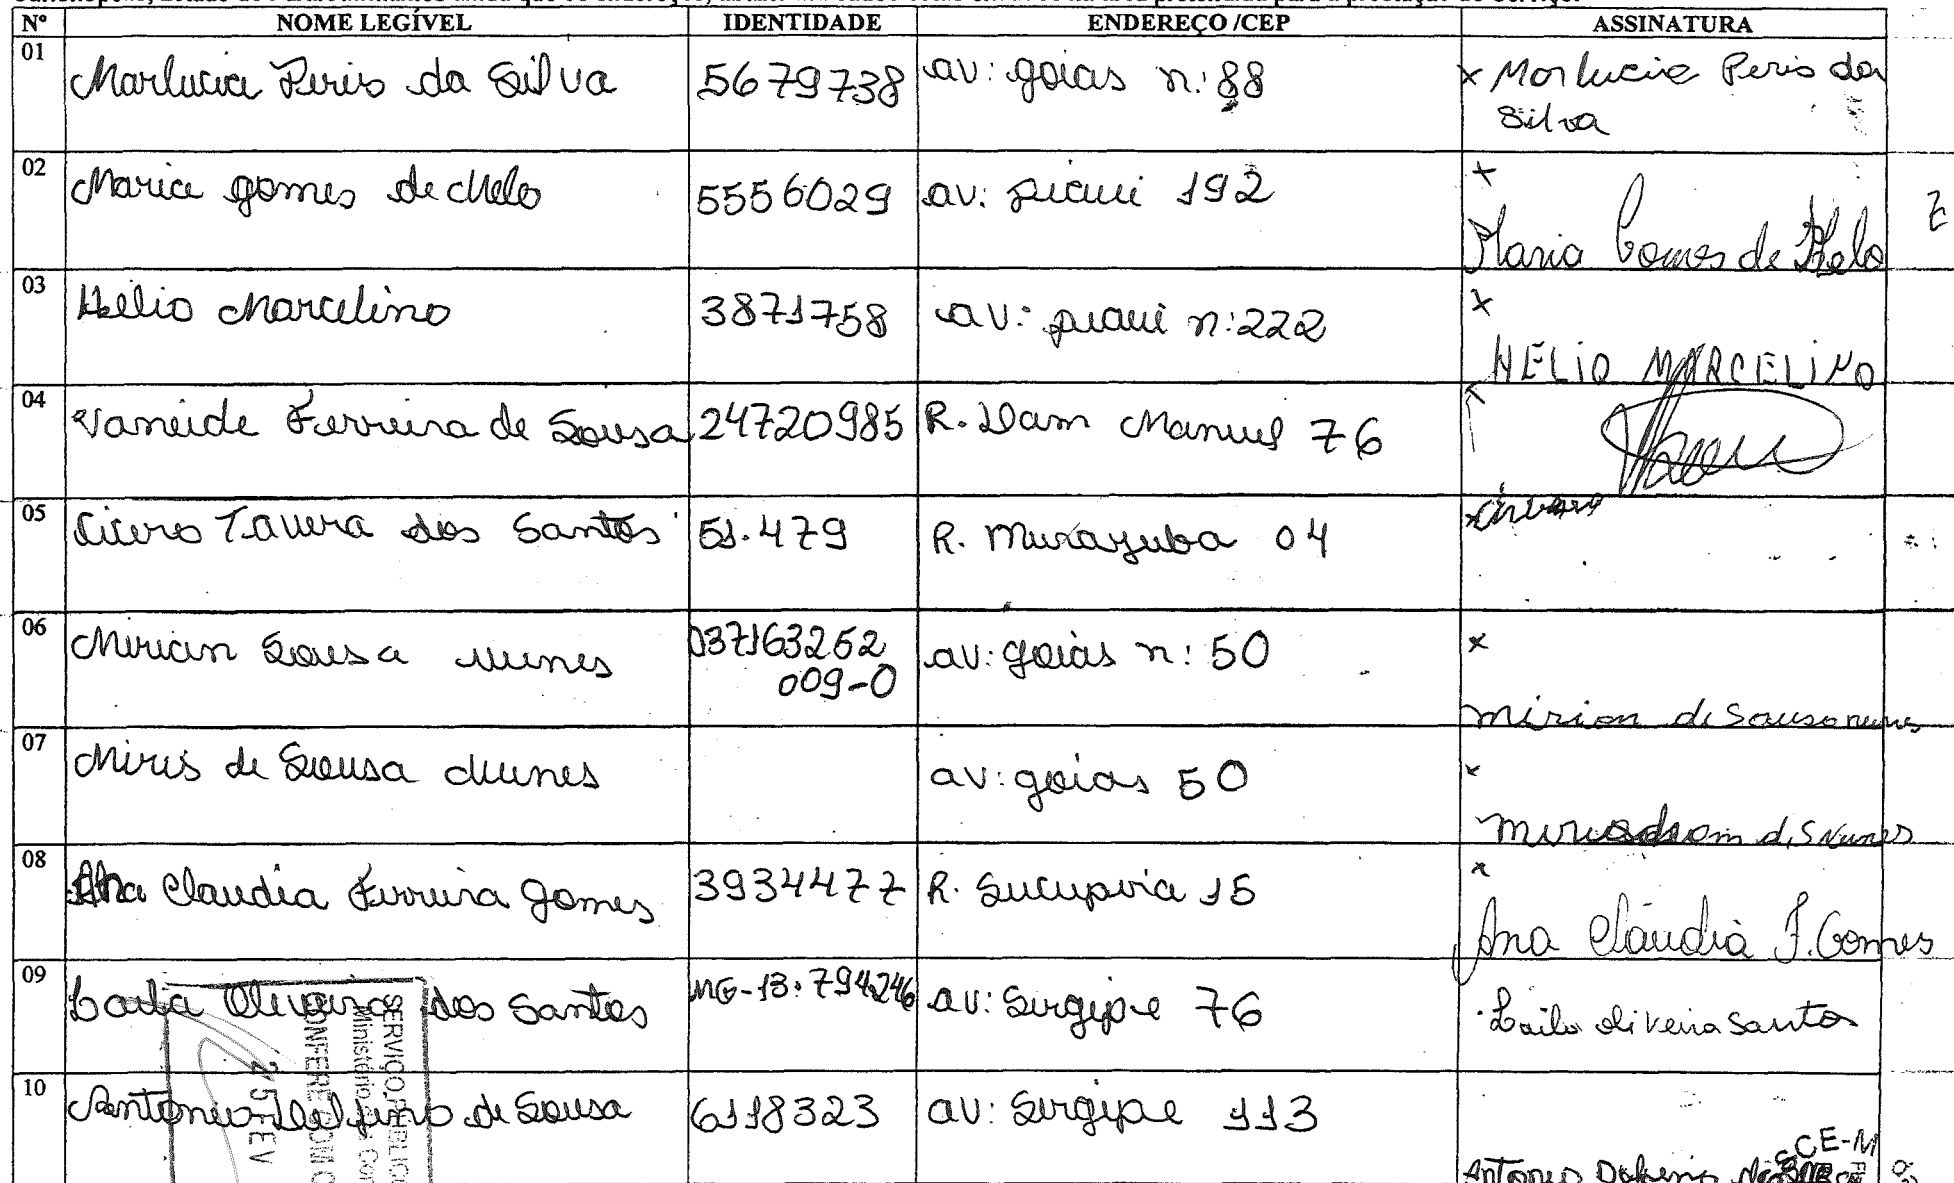 Nº NOME LEGÍVEL IDENTIDADE ENDEREÇO /CEP ASSINATURA
01 Marlucia Peris da Silva 5679738 av: goias n: 88 x Marlucia Peris da
Silva
02 Maria gomes de Melo 5556029 av: piaui 192 x
Maria Gomes de Melo
03 Hélio Marcelino 3871758 av: piaui n: 222 x
HÉLIO MARCELINO
04 Vaneide Ferreira de Sousa 24720985 R. Dam Manuel 76
05 Cicero Tavera dos Santos 51.479 R. Murajuba 04
06 Mirian Sousa nunes 037163252 av: goiás n: 50 x
009-0
mirian de Sousa nunes
07 Miris de Sousa Nunes av: goias 50 x
08 Ana Claudia Ferreira gomes 3934477 R. Sucupira 15 x
Ana Cláudia F. Gomes
09 Laila Oliveira dos Santos MG-13.794246 av: Sergipe 76 Laila oliveira Santos
10 Antonio Delfino de Sousa 6118323 av: Sergipe 113
SERVIÇO PÚBLICO
Ministério
CONFERE COM O
25 FEV